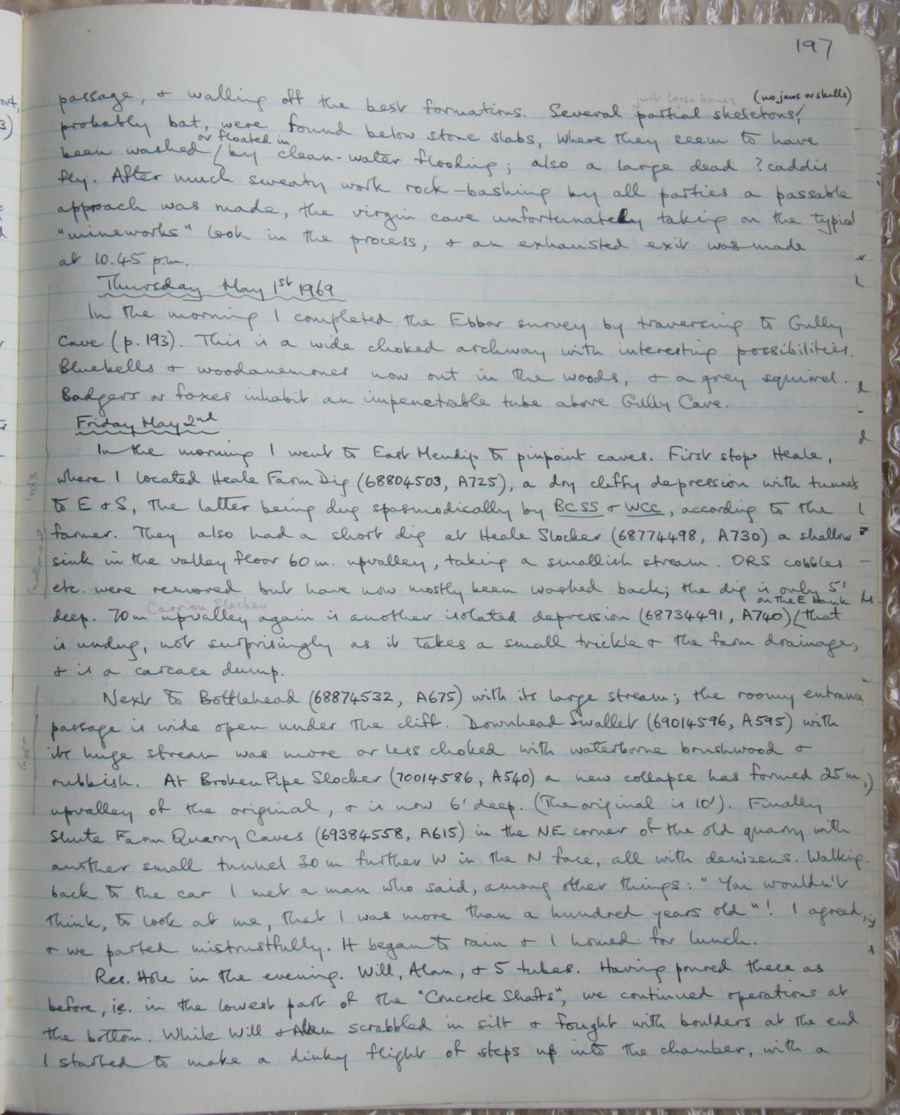 197
passage, & walling off the best formations. Several partial skeletons, (no jaws or skulls)
just loose bones
probably bat, were found below stone slabs, where they seem to have
been washed / or floated in by clean-water flooding; also a large dead ? caddis
fly. After much sweaty work rock-bashing by all parties a passable
approach was made, the virgin cave unfortunately taking on the typical
"mineworks" look in the process, & an exhausted exit was made
at 10.45 pm.
Thursday May 1st 1969
In the morning I completed the Ebbor survey by traversing to Gully
Cave (p.193). This is a wide choked archway with interesting possibilities.
Bluebells & woodanemones now out in the woods, & a grey squirrel.
Badgers or foxes inhabit an impenetrable tube above Gully Cave.
Friday May 2nd
In the morning I went to East Mendip to pinpoint caves. First stop Heale,
where I located Heale Farm Dig (68804503, A725), a dry cliffy depression with tunnels
to E & S, the latter being dug spasmodically by BCSS & WCC, according to the
farmer. They also had a short dig at Heale Slocker (68774498, A730) a shallow
sink in the valley floor 60 m. upvalley, taking a smallish stream. ORS cobbles
etc. were removed but have now mostly been washed back; the dig is only 5'
deep. 70m upvalley again is another isolated depression (68734491, A740) / on the E bank that
Carrion Slocker
is undug, not surprisingly as it takes a small trickle & the farm drainage,
& is a carcase dump.
Next to Bottlehead (68874532, A675) with its large stream; the roomy entrance
passage is wide open under the cliff. Downhead Swallet (69014596, A595) with
its huge stream was more or less choked with waterborne brushwood &
rubbish. At Broken Pipe Slocker (70014586, A540) a new collapse has formed 25 m,
upvalley of the original, & is now 6' deep. (The original is 10'). Finally
Shute Farm Quarry Caves (69384558, A615) in the NE corner of the old quarry with
another small tunnel 30 m further W in the N face, all with denizens. Walking
back to the car I met a man who said, among other things: "You wouldn't
think, to look at me, that I was more than a hundred years old"! I agreed,
& we parted mistrustfully. It began to rain & I homed for lunch.
Res. Hole in the evening. Will, Alan, & 5 tubes. Having poured these as
before, i.e. in the lowest part of the "Concrete Shafts", we continued operations at
the bottom. While Will & Alan scrabbled in silt & fought with boulders at the end
I started to make a dinky flight of steps up into the chamber, with a